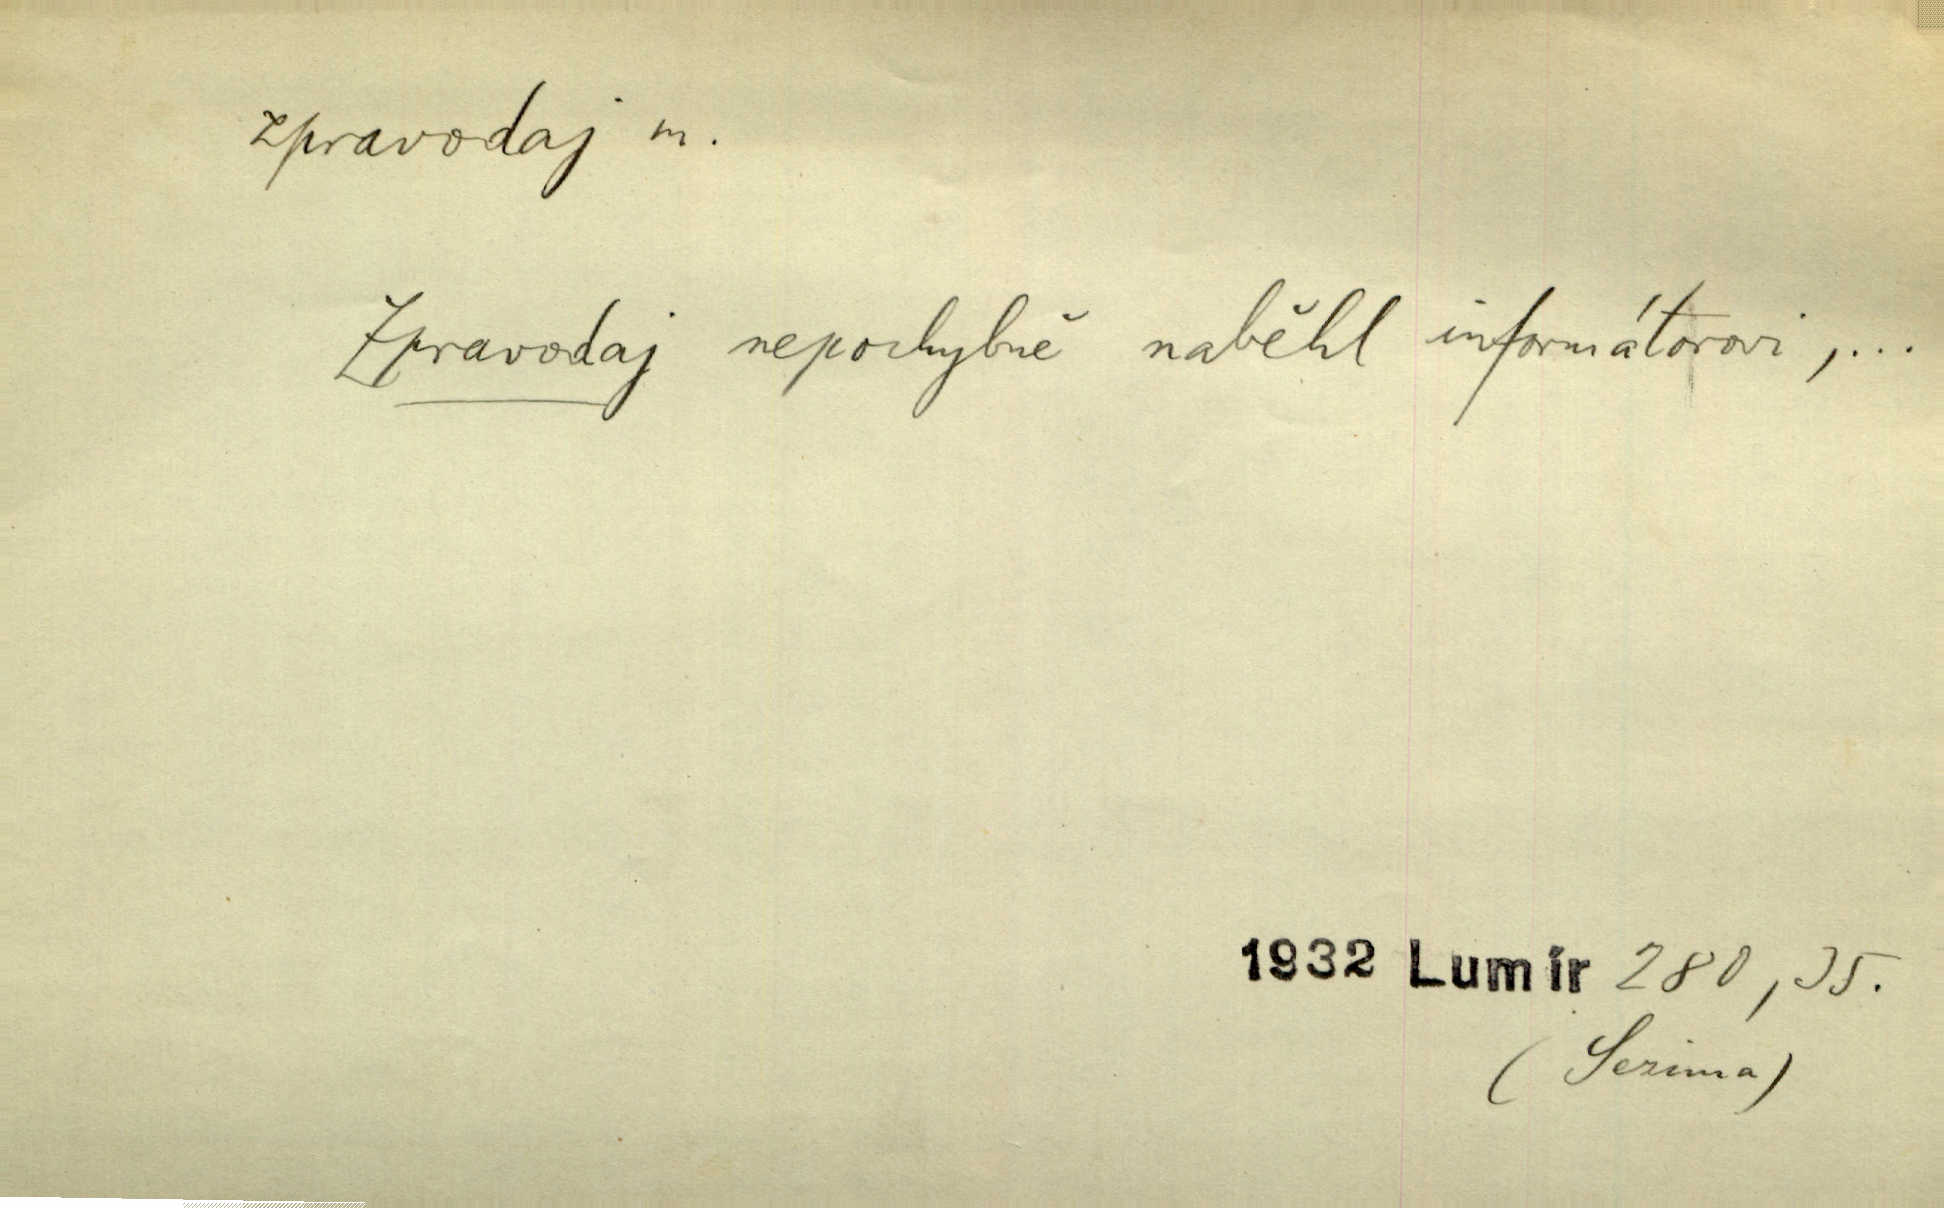 zpravodaj m.
Zpravodaj nepochybně naběhl informátorovi,...
1932 Lumír 280, 35.
(Sezima)